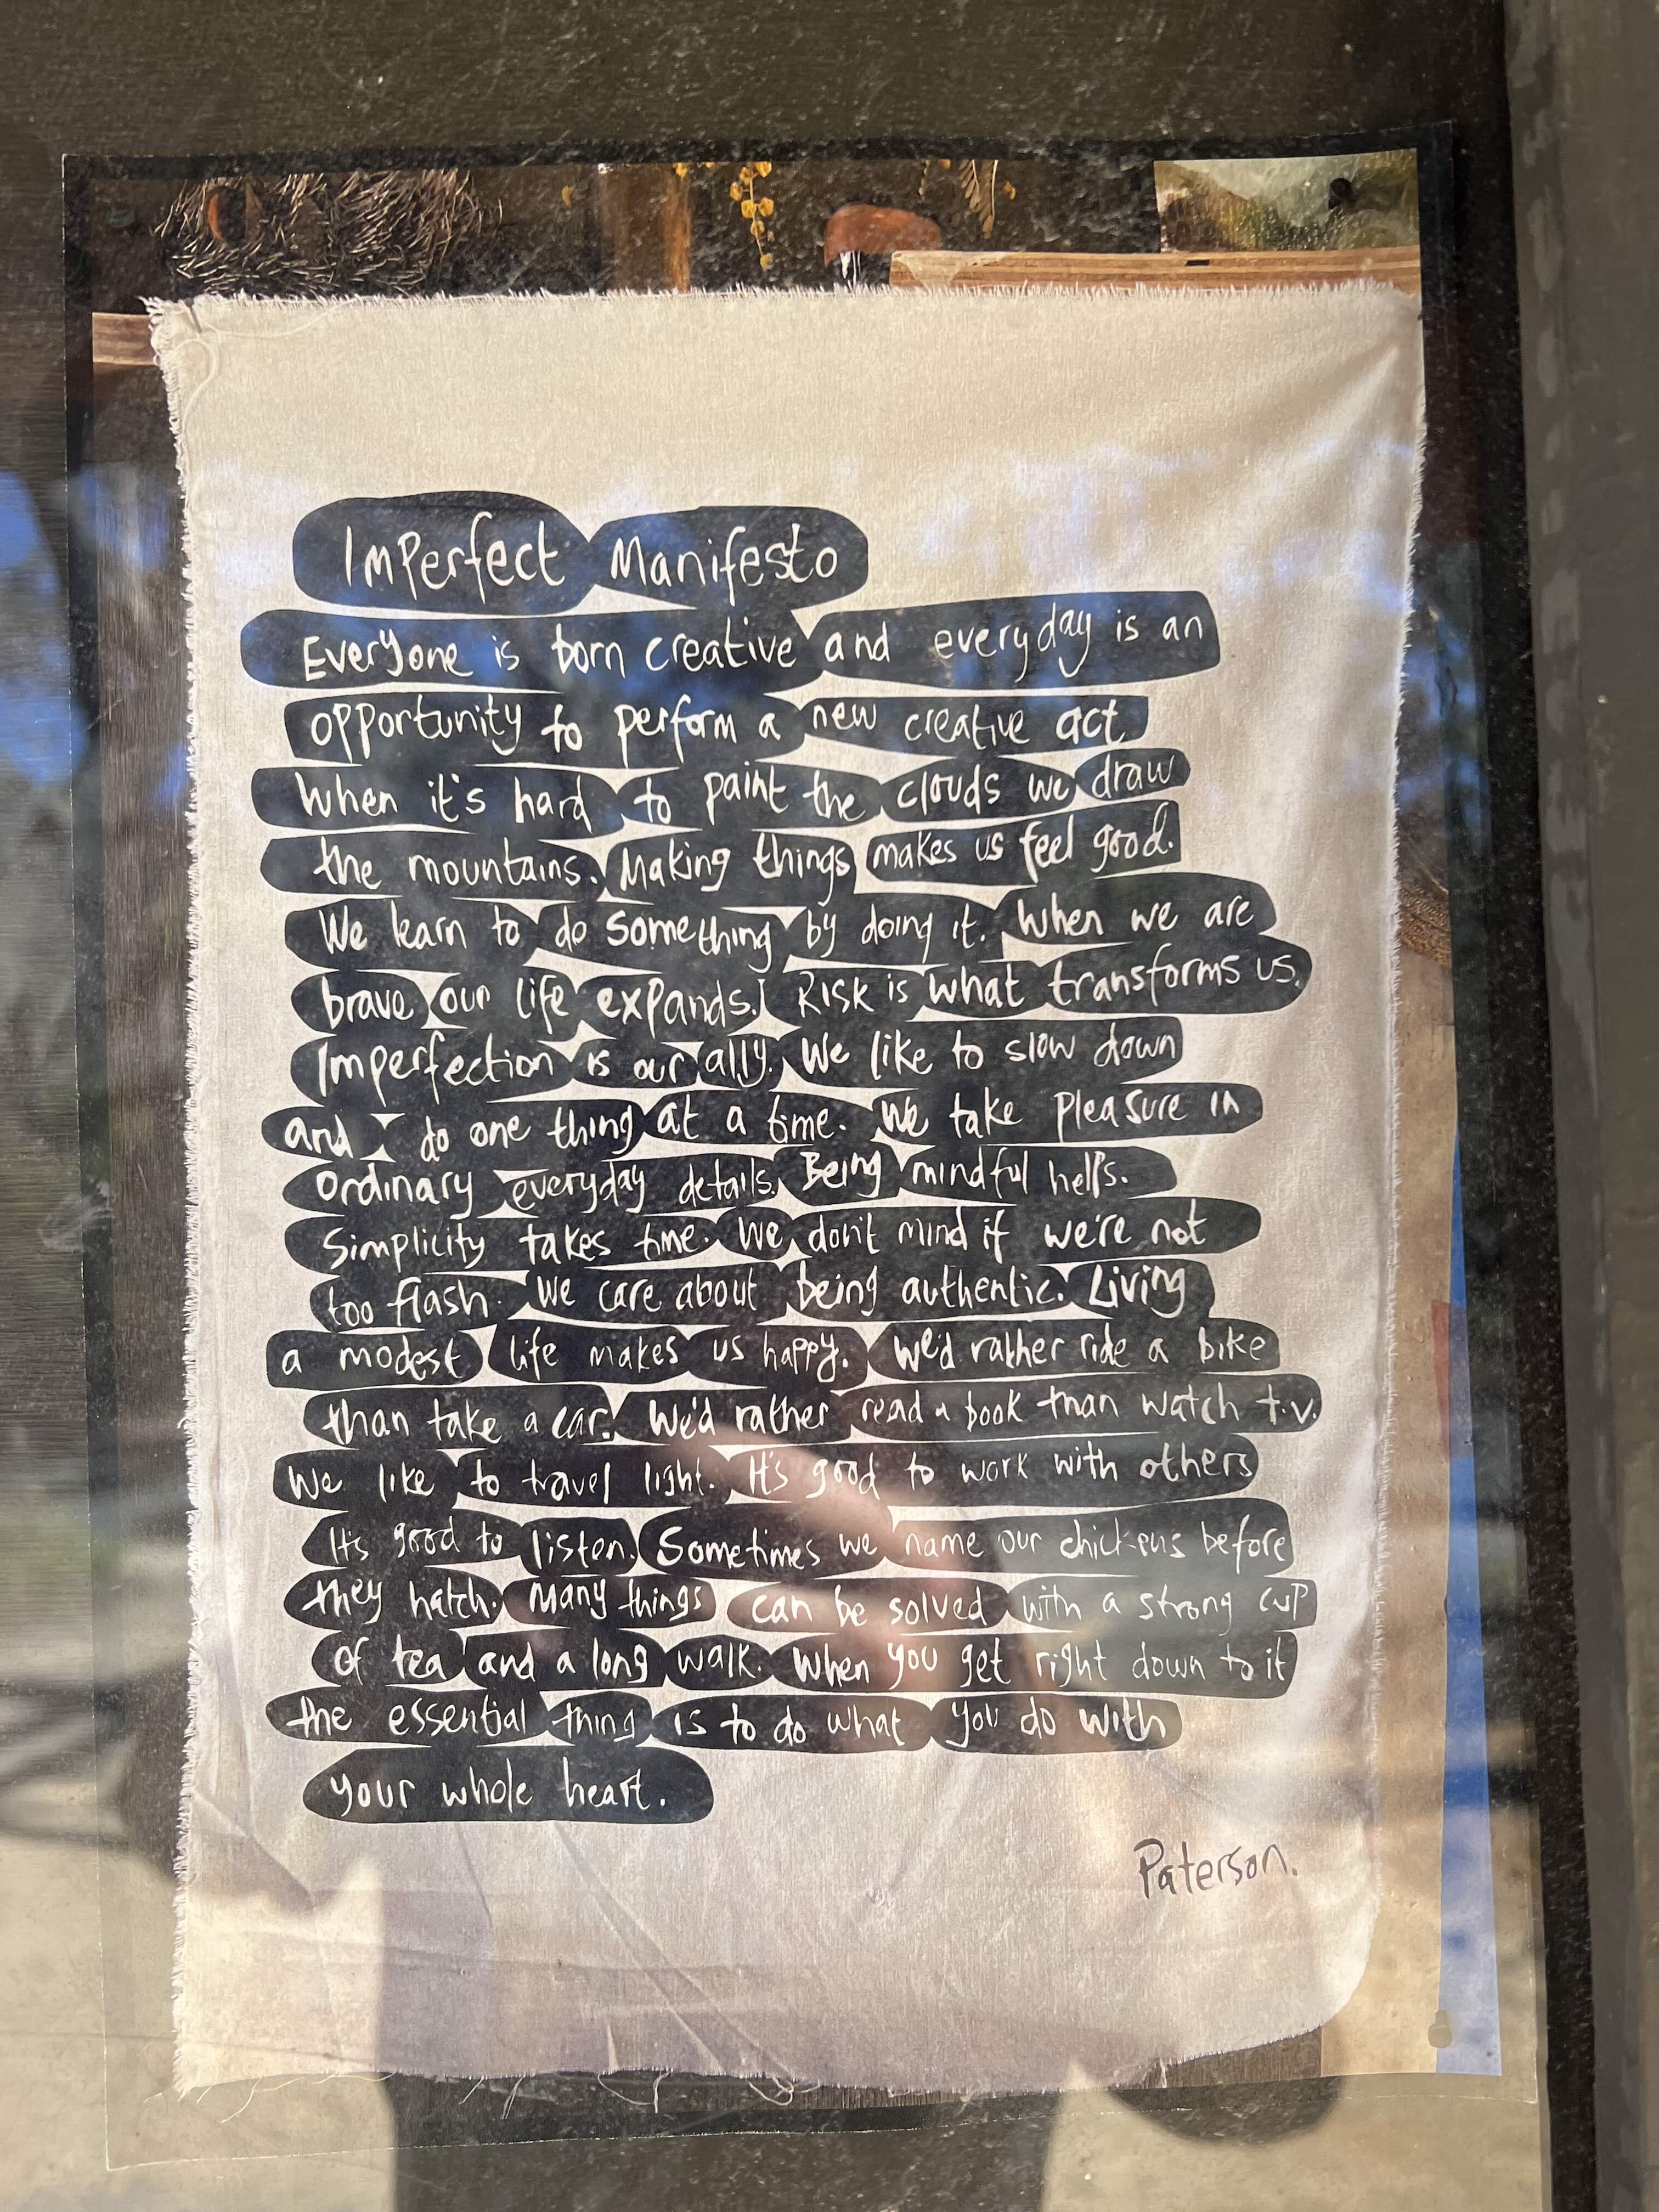 Imperfect Manifesto
Everyone is born creative and everyday is an
opportunity to perform a new creative act.
When it's hard to paint the clouds we draw
the mountains. Making things makes us feel good.
We learn to do something by doing it. When we are
brave our life expands. Risk is what transforms us.
Imperfection is our ally. We like to slow down
and do one thing at a time. We take pleasure in
ordinary everyday details. Being mindful helps.
Simplicity takes time. We don't mind if we're not
too flash. We care about being authentic. Living
a modest life makes us happy. We'd rather ride a bike
than take a car. We'd rather read a book than watch t.v.
We like to travel light. It's good to work with others
It's good to listen. Sometimes we name our chickens before
they hatch. Many things can be solved with a strong cup
of tea and a long walk. When you get right down to it
the essential thing is to do what you do with
your whole heart.
Paterson.